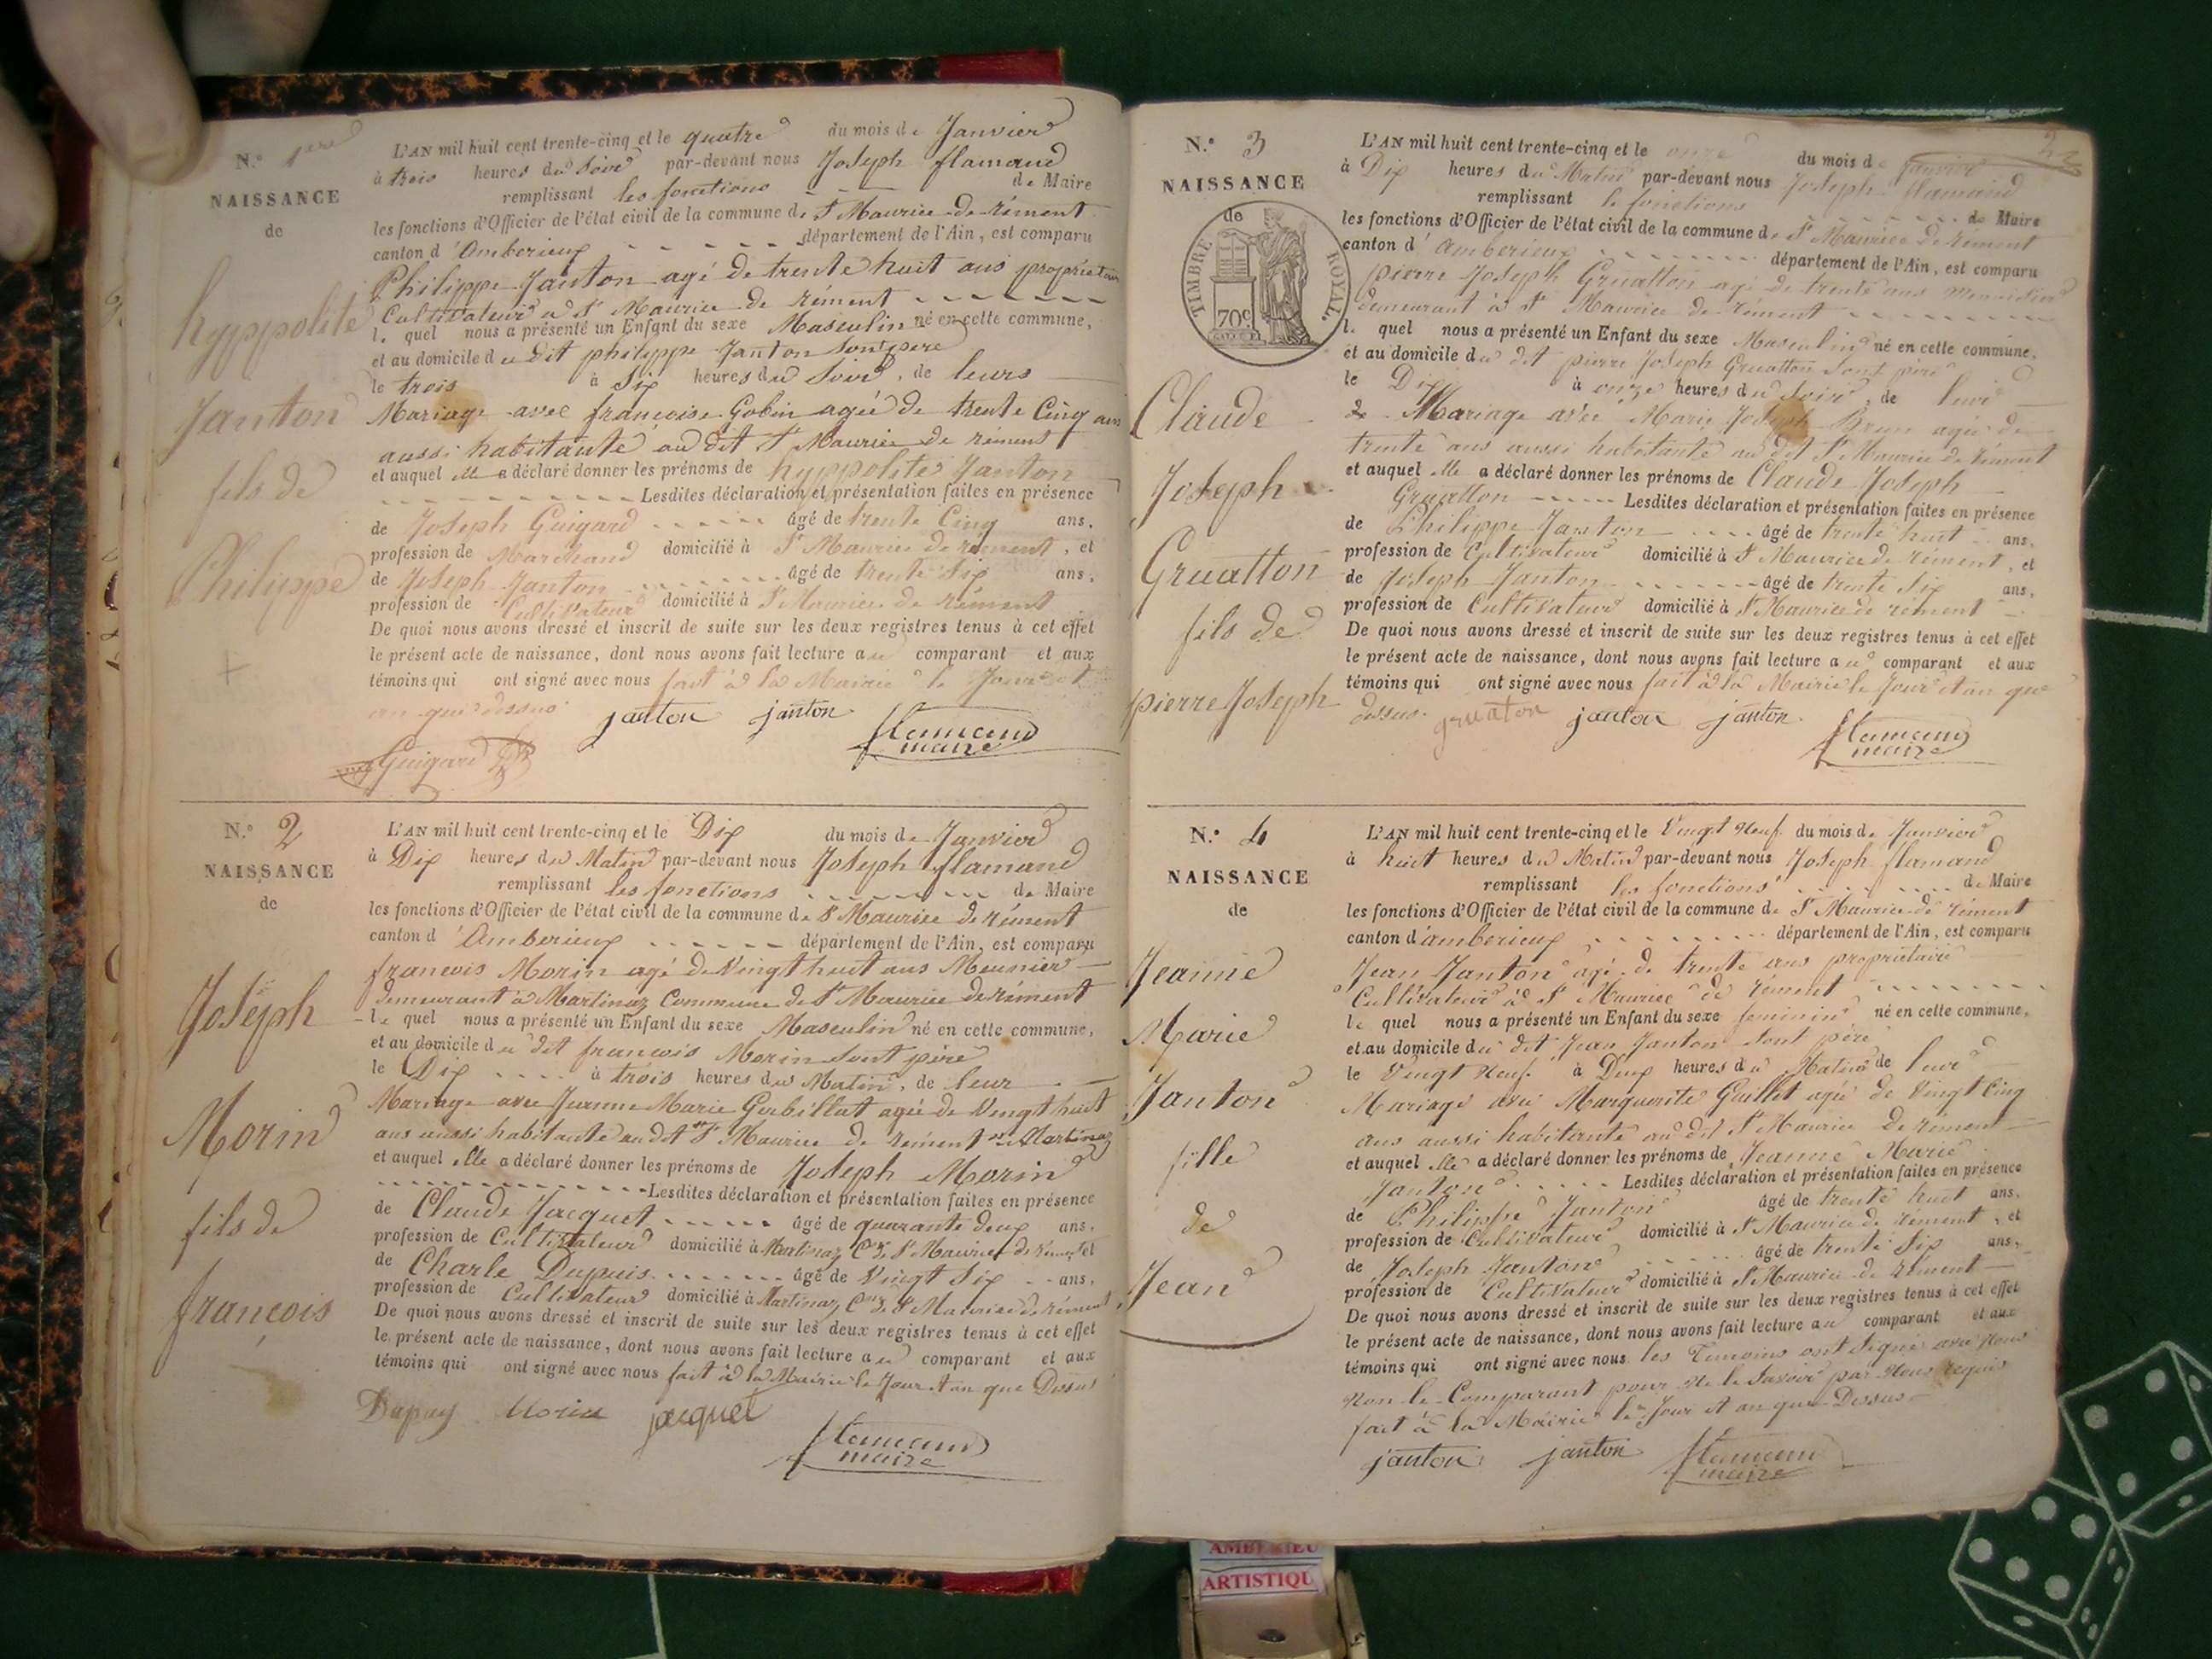 N.º 1ere
NAISSANCE
de
hyppolite
Janton
fils de
Philippe
L'AN mil huit cent trente-cinq et le quatre du mois de Janvier
à trois heures du Soir par-devant nous Joseph flamand
remplissant les fonctions de Maire
les fonctions d'Officier de l'état civil de la commune de St Maurice de rément
canton d'Amberieux département de l'Ain, est comparu
Philippe Janton agé de trente huit ans propriétaire
Cultivateur à St Maurice de rément
le quel nous a présenté un Enfant du sexe Masculin né en cette commune,
et au domicile du dit philippe Janton Sont pere
le trois à Six heures du Soir, de leurs
Mariage avec francoise Gobin agée de trente Cinq ans
aussi habitante au dit St Maurice de rément
et auquel elle a déclaré donner les prénoms de hyppolite Janton
Lesdites déclaration et présentation faites en présence
de Joseph Guigard âgé de trente Cinq ans,
profession de Marchand domicilié à St Maurice de rément, et
de Joseph Janton âgé de trente Six ans,
profession de Cultivateur domicilié à St Maurice de rément
De quoi nous avons dressé et inscrit de suite sur les deux registres tenus à cet effet
le présent acte de naissance, dont nous avons fait lecture au comparant et aux
témoins qui ont signé avec nous fait à la Mairie le Jour et
an que dessus
janton janton flamand
maire
Guigard
N.º 2
NAISSANCE
de
Joseph
Morin
fils de
francois
L'AN mil huit cent trente-cinq et le Dix du mois de Janvier
à Dix heures du Matin par-devant nous Joseph flamand
remplissant les fonctions de Maire
les fonctions d'Officier de l'état civil de la commune de St Maurice de rément
canton d'Amberieux département de l'Ain, est comparu
francois Morin agé de Vingt huit ans Meunier
demeurant à Martinaz Commune de St Maurice de rément
le quel nous a présenté un Enfant du sexe Masculin né en cette commune,
et au domicile du dit francois Morin Sont père
le Dix à trois heures du Matin, de leur
Mariage avec Jeanne Marie Gerbillat agée de Vingt huit
ans aussi habitante au dit St Maurice de rément Martinaz
et auquel elle a déclaré donner les prénoms de Joseph Morin
Lesdites déclaration et présentation faites en présence
de Claude Jacquet âgé de quarante deux ans,
profession de Cultivateur domicilié à Martinaz Cne de St Maurice de rément, et
de Charle Dupuis âgé de Vingt Six ans,
profession de Cultivateur domicilié à Martinaz Cne de St Maurice de rément
De quoi nous avons dressé et inscrit de suite sur les deux registres tenus à cet effet
le présent acte de naissance, dont nous avons fait lecture au comparant et aux
témoins qui ont signé avec nous fait à la Mairie le Jour et an que Dessus
Dupuy Morin jacquet
flamand
maire
N.º 3
NAISSANCE
de
TIMBRE ROYAL.
70c
Claude
Joseph
Gruatton
fils de
pierre Joseph
L'AN mil huit cent trente-cinq et le onze du mois de Janvier
à Dix heures du Matin par-devant nous Joseph flamand
remplissant le fonctions de Maire
les fonctions d'Officier de l'état civil de la commune de St Maurice de rément
canton d'amberieux département de l'Ain, est comparu
pierre Joseph Gruatton agé de trente ans Menuisier
demeurant à St Maurice de rément
le quel nous a présenté un Enfant du sexe Masculin né en cette commune,
et au domicile du dit pierre Joseph Gruatton Sont père
le Dix à onze heures du Soir, de leur
Mariage avec Marie Joseph Brun agée de
trente ans aussi habitante au dit St Maurice de rément
et auquel elle a déclaré donner les prénoms de Claude Joseph
Gruatton Lesdites déclaration et présentation faites en présence
de Philippe Janton âgé de trente huit ans,
profession de Cultivateur domicilié à St Maurice de rément, et
de Joseph Janton âgé de trente Six ans,
profession de Cultivateur domicilié à St Maurice de rément
De quoi nous avons dressé et inscrit de suite sur les deux registres tenus à cet effet
le présent acte de naissance, dont nous avons fait lecture au comparant et aux
témoins qui ont signé avec nous fait à la Mairie le Jour et an que
dessus. gruaton janton janton flamand
maire
N.º 4
NAISSANCE
de
Jeanne
Marie
Janton
fille
de
Jean
L'AN mil huit cent trente-cinq et le Vingt Neuf du mois de Janvier
à huit heures du Matin par-devant nous Joseph flamand
remplissant les fonctions de Maire
les fonctions d'Officier de l'état civil de la commune de St Maurice de rément
canton d'amberieux département de l'Ain, est comparu
Jean Janton agé de trente ans propriétaire
Cultivateur à St Maurice de rément
le quel nous a présenté un Enfant du sexe feminin né en cette commune,
et au domicile du dit Jean Janton Sont père
le Vingt Neuf à Deux heures du Matin de leur
Mariage avec Marguerite Guillet agée de Vingt Cinq
ans aussi habitante au dit St Maurice de rément
et auquel elle a déclaré donner les prénoms de Jeanne Marie
Janton Lesdites déclaration et présentation faites en présence
de Philippe Janton âgé de trente huit ans,
profession de Cultivateur domicilié à St Maurice de rément, et
de Joseph Janton âgé de trente Six ans,
profession de Cultivateur domicilié à St Maurice de rément
De quoi nous avons dressé et inscrit de suite sur les deux registres tenus à cet effet
le présent acte de naissance, dont nous avons fait lecture au comparant et aux
témoins qui ont signé avec nous les Temoins ont Signé avec Nous
Non le Comparant pour Ne le Savoir par Nous requis
fait à la Mairie les Jour et an que Dessus
janton janton flamand
maire
AMBERIEU
ARTISTIQU